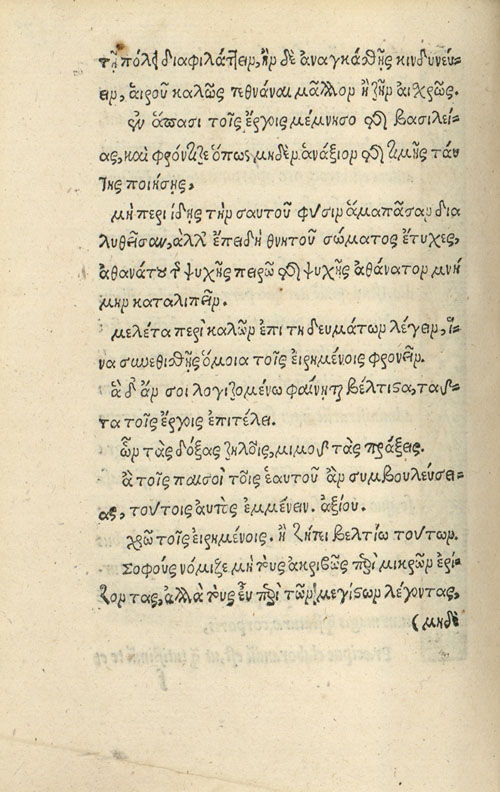 τῇ πόλει διαφιλάττειν, ἢν δὲ ἀναγκάσθῃς κινδυνεύ-
ειν, ἁιροῦ καλῶς τεθνάναι μᾶλλον ἢ ζῆν αἰσχρῶς.
ἐν ἅπασι τοῖς ἔργοις μέμνησο τῆς βασιλεί-
ας, καὶ φρόντιζε ὅπως μηδὲν ἀνάξιον τῆς τιμῆς ταύ
της ποιήσῃς,
μὴ περιίδῃς τὴν σαυτοῦ φύσιν ἅμα πᾶσαν δια
λυθεῖσαν, ἀλλ' ἐπειδὴ θνητοῦ σώματος ἔτυχες,
ἀθανάτου δὲ ψυχῆς πειρῶ τῆς ψυχῆς ἀθάνατον μνή
μην καταλιπεῖν.
μελέτα περὶ καλῶν ἐπιτηδευμάτων λέγειν, ἵ-
να συνεθισθῇς ὅμοια τοῖς εἰρημένοις φρονεῖν.
ἃ δ' ἄν σοι λογιζομένῳ φαίνηται βέλτιστα, ταῦ-
τα τοῖς ἔργοις ἐπιτέλει.
ὧν τὰς δόξας ζηλοῖς, μιμοῦ τὰς πράξεις.
ἃ τοῖς παισὶ τοῖς ἑαυτοῦ ἂν συμβουλεύσει-
ας, τούτοις αὐτὸς ἐμμένειν. ἀξίου.
χρῶ τοῖς εἰρημένοις. ἢ ζήτει βελτίω τούτων.
Σοφοὺς νόμιζε μὴ τοὺς ἀκριβῶς περὶ μικρῶν ἐρί-
ζοντας, ἀλλὰ τοὺς εὖ περὶ τῶν μεγίστων λέγοντας,
(μηδὲ